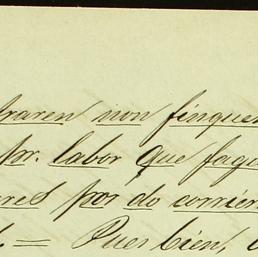 traren non finquen
por. labor que fagu
res por do corrier
. = Pues bien,